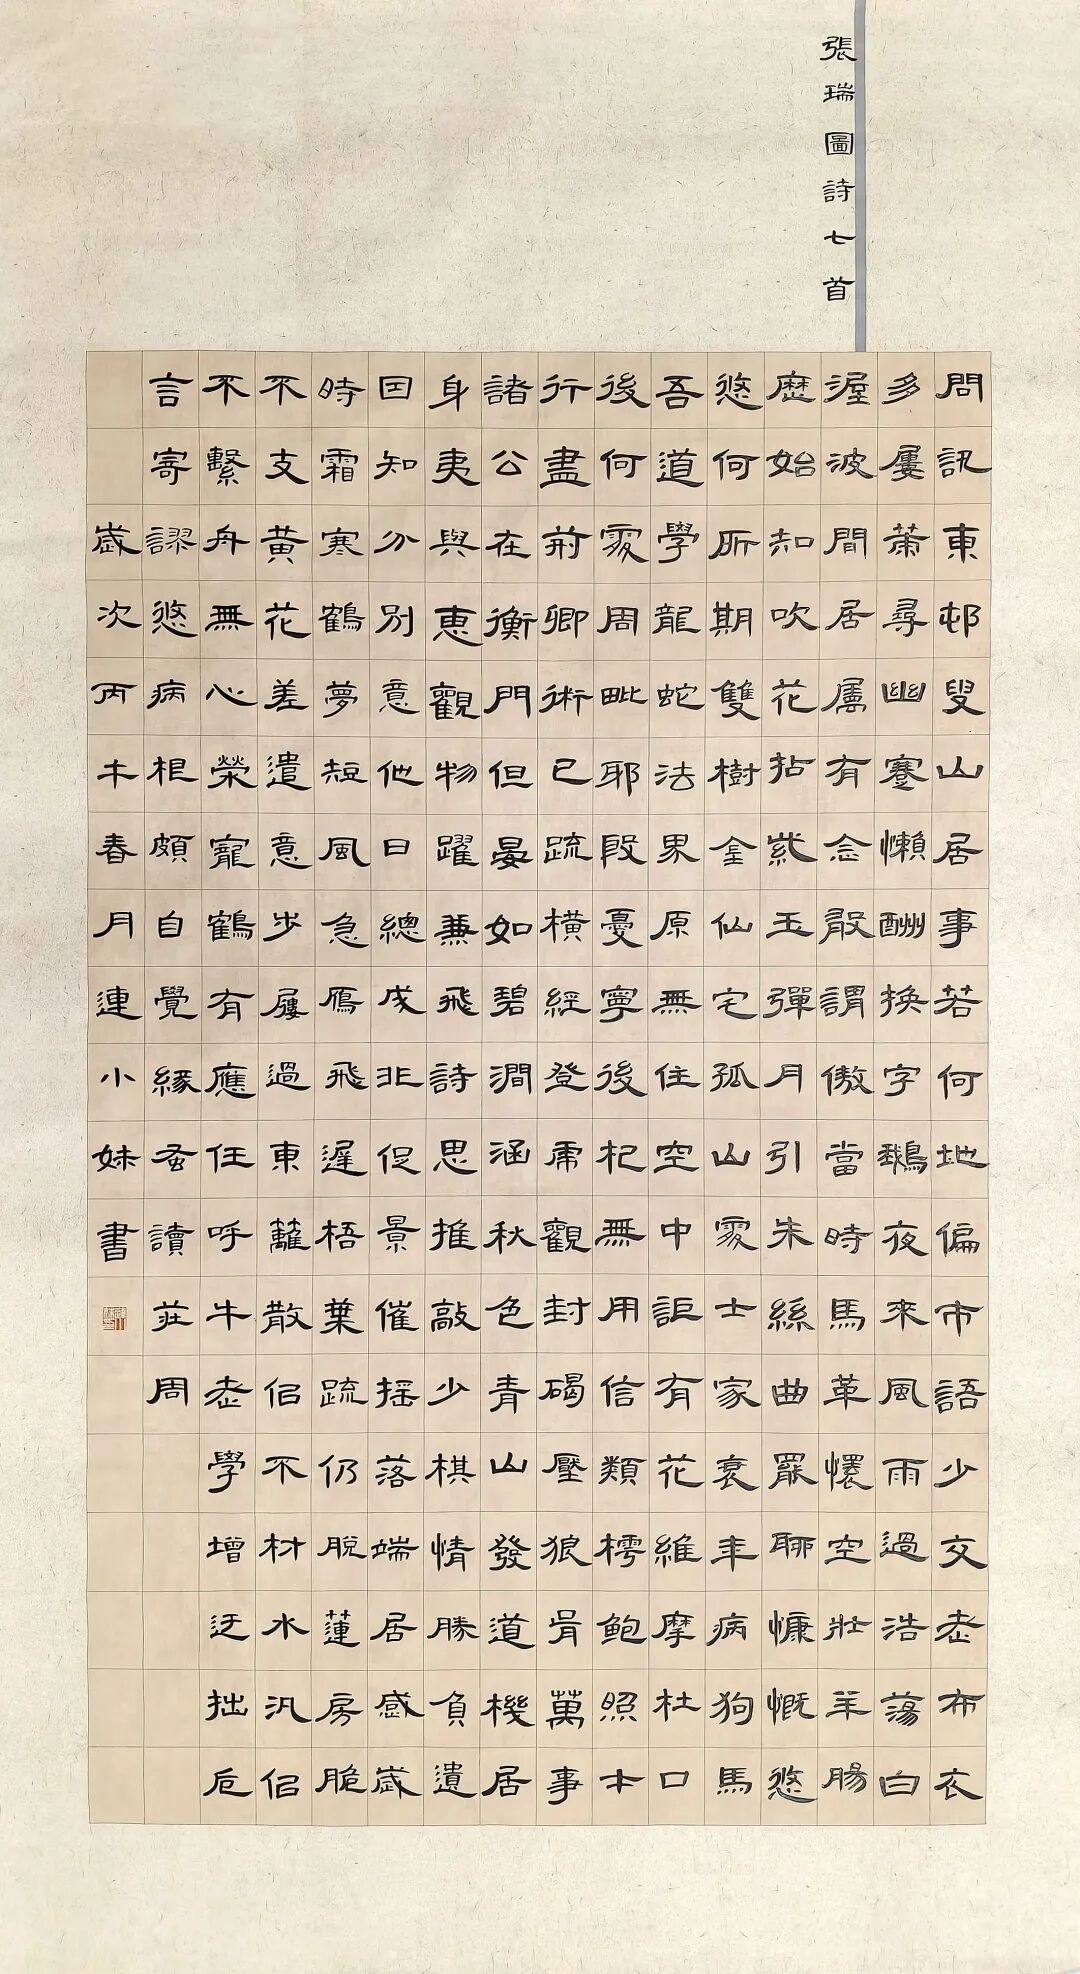 張瑞圖詩七首
問訊東邨叟山居事若何地偏市語少交老布衣
多屢蕭尋幽蹇懶酬換字鵝夜來風雨過浩蕩白
渥波間居屬有念敢謂傲當時馬革懷空壯羊腸
歷始知吹花拈紫玉彈月引朱絲曲罷聊慷慨悠
悠何所期雙樹金仙宅孤山處士家衰年病狗馬
吾道學龍蛇法界原無住空中詎有花維摩杜口
後何處周毗耶段憂寧後杞無用信類樗鮑照本
行盡荊卿術已疏橫經登虎觀封碣壓狼胥萬事
諸公在衡門但晏如碧澗涵秋色青山發道機居
身夷與惠觀物躍兼飛詩思推敲少棋情勝負遺
因知分別意他日總成非促景催搖落端居感歲
時霜寒鶴夢短風急雁飛遲梧葉疏仍脫蓮房脆
不支黃花差遣意步屧過東籬散侶不材水汎侶
不繫舟無心榮寵鶴有應任呼牛老學增迂拙卮
言寄謬悠病根頗自覺緣蚤讀莊周
歲次丙午春月連小妹書